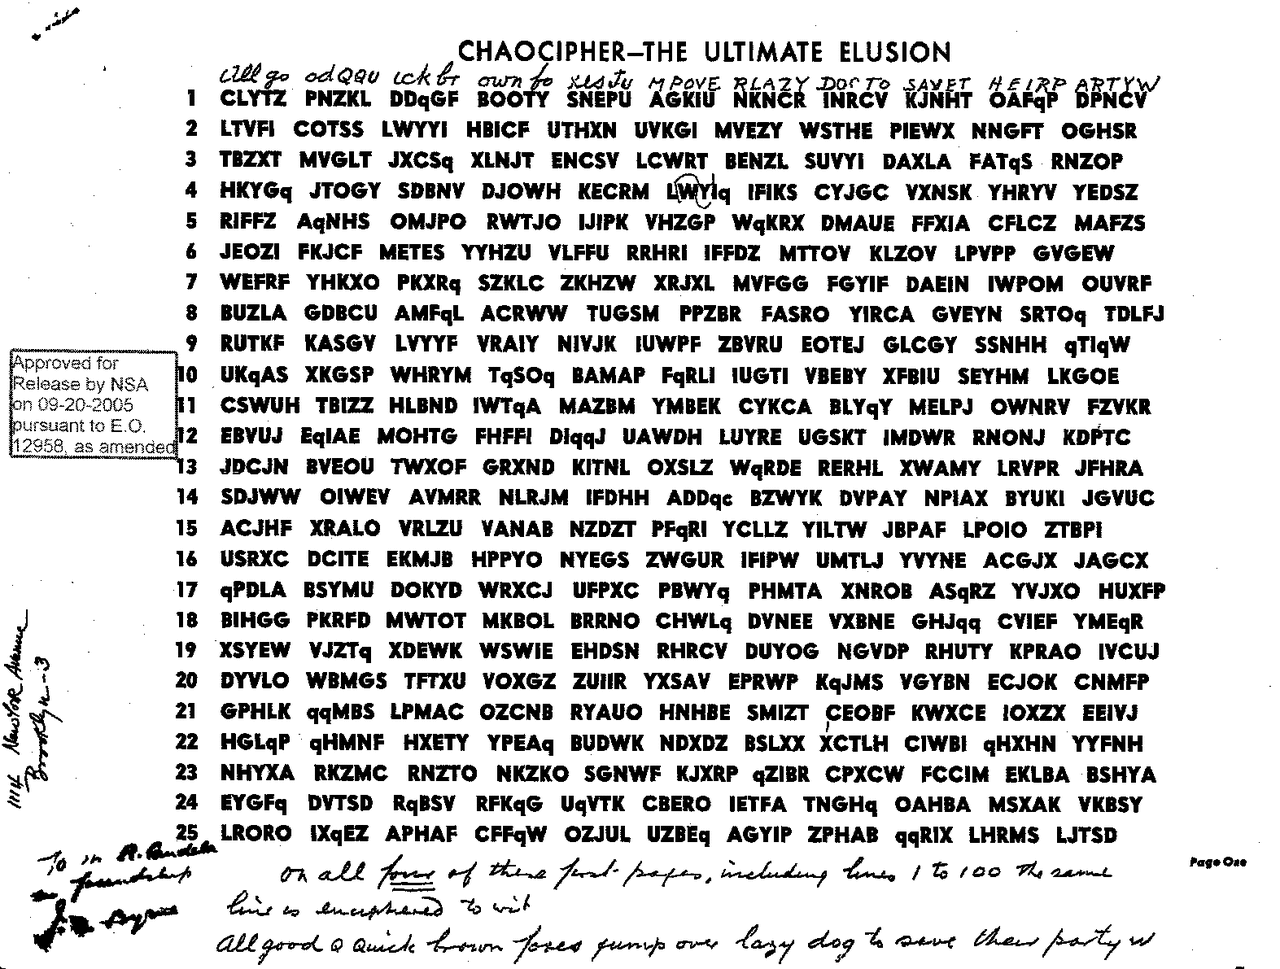 CHAOCIPHER—THE ULTIMATE ELUSION
Allgo odQQU ickbr ownfo xesju MPOVE RLAZY DOGTO SAVET HEIRP ARTYW
1 CLYTZ PNZKL DDqGF BOOTY SNEPU AGKIU NKNCR INRCV KJNHT OAFqP DPNCV
2 LTVFI COTSS LWYYI HBICF UTHXN UVKGI MVEZY WSTHE PIEWX NNGFT OGHSR
3 TBZXT MVGLT JXCSq XLNJT ENCSV LCWRT BENZL SUVYI DAXLA FATqS RNZOP
4 HKYGq JTOGY SDBNV DJOWH KECRM LWYIq IFIKS CYJGC VXNSK YHRYV YEDSZ
5 RIFFZ AqNHS OMJPO RWTJO IJIPK VHZGP WqKRX DMAUE FFXIA CFLCZ MAFZS
6 JEOZI FKJCF METES YYHZU VLFFU RRHRI IFFDZ MTTOV KLZOV LPVPP GVGEW
7 WEFRF YHKXO PKXRq SZKLC ZKHZW XRJXL MVFGG FGYIF DAEIN IWPOM OUVRF
8 BUZLA GDBCU AMFqL ACRWW TUGSM PPZBR FASRO YIRCA GVEYN SRTOq TDLFJ
9 RUTKF KASGV LVYYF VRAIY NIVJK IUWPF ZBVRU EOTEJ GLCGY SSNHH qTIqW
10 UKqAS XKGSP WHRYM TqSOq BAMAP FqRLI IUGTI VBEBY XFBIU SEYHM LKGOE
11 CSWUH TBIZZ HLBND IWTqA MAZBM YMBEK CYKCA BLYqY MELPJ OWNRV FZVKR
12 EBVUJ EqIAE MOHTG FHFFI DIqqJ UAWDH LUYRE UGSKT IMDWR RNONJ KDPTC
13 JDCJN BVEOU TWXOF GRXND KITNL OXSLZ WqRDE RERHL XWAMY LRVPR JFHRA
14 SDJWW OIWEV AVMRR NLRJM IFDHH ADDqc BZWYK DVPAY NPIAX BYUKI JGVUC
15 ACJHF XRALO VRLZU VANAB NZDZT PFqRI YCLLZ YILTW JBPAF LPOIO ZTBPI
16 USRXC DCITE EKMJB HPPYO NYEGS ZWGUR IFIPW UMTLJ YVYNE ACGJX JAGCX
17 qPDLA BSYMU DOKYD WRXCJ UFPXC PBWYq PHMTA XNROB ASqRZ YVJXO HUXFP
18 BIHGG PKRFD MWTOT MKBOL BRRNO CHWLq DVNEE VXBNE GHJqq CVIEF YMEqR
19 XSYEW VJZTq XDEWK WSWIE EHDSN RHRCV DUYOG NGVDP RHUTY KPRAO IVCUJ
20 DYVLO WBMGS TFTXU VOXGZ ZUIIR YXSAV EPRWP KqJMS VGYBN ECJOK CNMFP
21 GPHLK qqMBS LPMAC OZCNB RYAUO HNHBE SMIZT CEOBF KWXCE IOXZX EEIVJ
22 HGLqP qHMNF HXETY YPEAq BUDWK NDXDZ BSLXX XCTLH CIWBI qHXHN YYFNH
23 NHYXA RKZMC RNZTO NKZKO SGNWF KJXRP qZIBR CPXCW FCCIM EKLBA BSHYA
24 EYGFq DVTSD RqBSV RFKqG UqVTK CBERO IETFA TNGHq OAHBA MSXAK VKBSY
25 LRORO IXqEZ APHAF CFFqW OZJUL UZBEq AGYIP ZPHAB qqRIX LHRMS LJTSD
Page One
Approved for
Release by NSA
on 09-20-2005
pursuant to E.O.
12958, as amended
1114 Avenue
Brooklyn-3
To
in friendship
J. Byrne
On all four of these first pages, including lines 1 to 100 the same
line is enciphered to wit
All good Q Quick brown foxes jump over lazy dog to save their party w